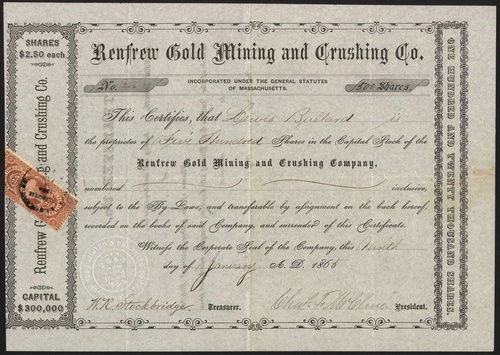 SHARES
$2.50 each
Renfrew Gold Mining and Crushing Co.
CAPITAL
$300,000
Renfrew Gold Mining and Crushing Co.
No.
INCORPORATED UNDER THE GENERAL STATUTES
OF MASSACHUSETTS.
500 Shares.
This Certifies, that Lewis Bullard is
the proprietor of Five Hundred Shares in the Capital Stock of the
Renfrew Gold Mining and Crushing Company,
numbered inclusive,
subject to the By-Laws, and transferable by assignment on the back hereof,
recorded on the books of said Company, and surrender of this Certificate.
Witness the Corporate Seal of the Company, this Ninth
day of January A. D. 1865
W. R. Stockbridge, Treasurer. President.
ONE HUNDRED AND TWENTY THOUSAND SHARES.